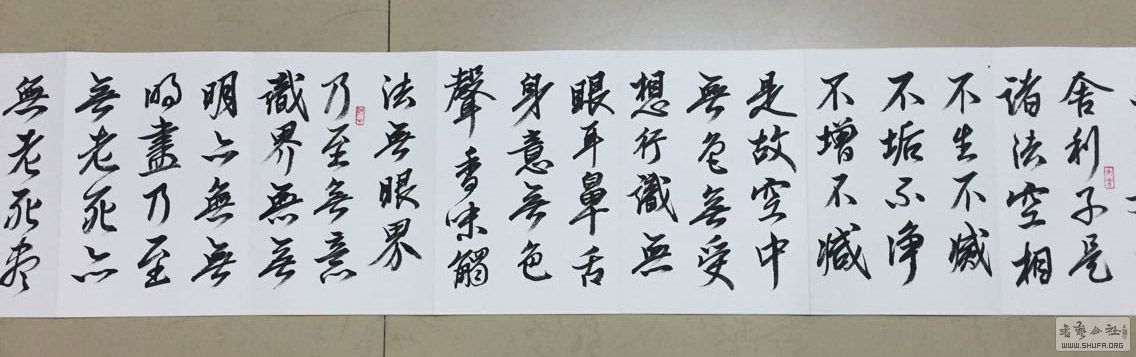 舍利子是
諸法空相
不生不滅
不垢不淨
不增不減
是故空中
無色無受
想行識無
眼耳鼻舌
身意無色
聲香味觸
法無眼界
乃至無意
識界無無
明亦無無
明盡乃至
無老死亦
無老死盡
書藝公社
WWW.SHUFA.ORG